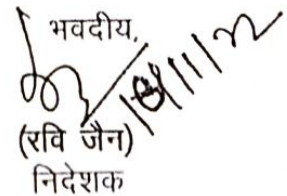 भवदीय,
(रवि जैन)
निदेशक